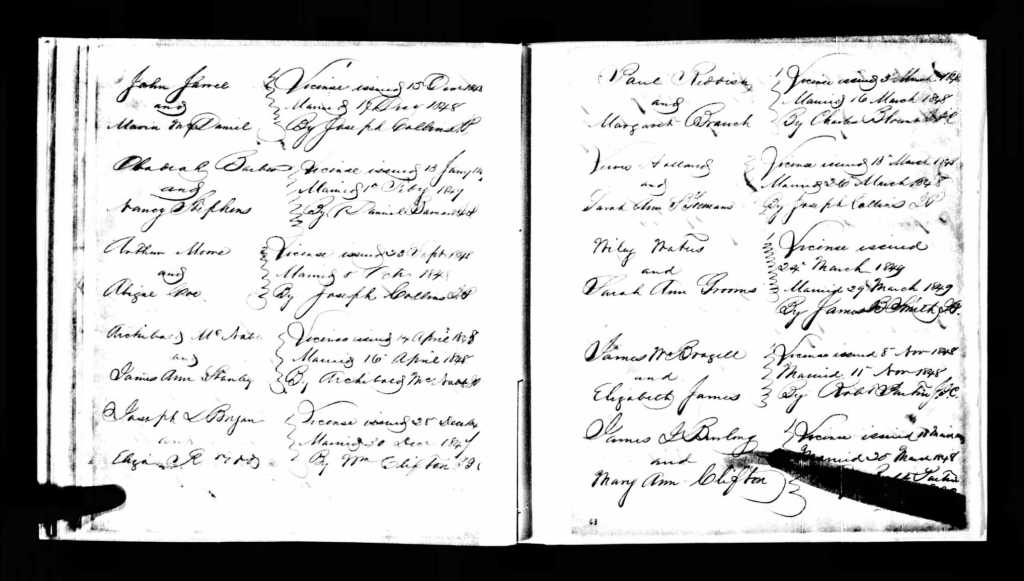 John
and
Maria McDaniel
License issued 15 Dec 1848
Married 19 Dec 1848
By Joseph Collins JP
Obadiah Barber
and
Nancy Stephens
License issued 13 Jany
Married 1st Feby 1849
By Daniel
Arthur Moore
and
License issued 28 Sept 1848
Married 1848
By Joseph Collins JP
Archibald
and
James Ann Stanley
License issued 14 April 1848
Married 16 April 1848
By Archibald
Joseph L Bryan
and
Eliza
License issued 28
Married 30 Dec 1847
By Wm Clifton
Paul Reddish
and
Margaret Branch
License issued 3 March
Married 16 March 1848
By Charles
Holland
and
Sarah Ann
License issued 18 March 1848
Married 26 March 1848
By Joseph Collins JP
Wiley Waters
and
Sarah Ann Grooms
License issued
24th March 1849
Married 29 March 1849
By James B Smith JP
James W Brazell
and
Elizabeth James
License issued 8 Nov 1848
Married 11th Nov 1848
By Robt
James
and
Mary Ann Clifton
License issued
Married 1848
63